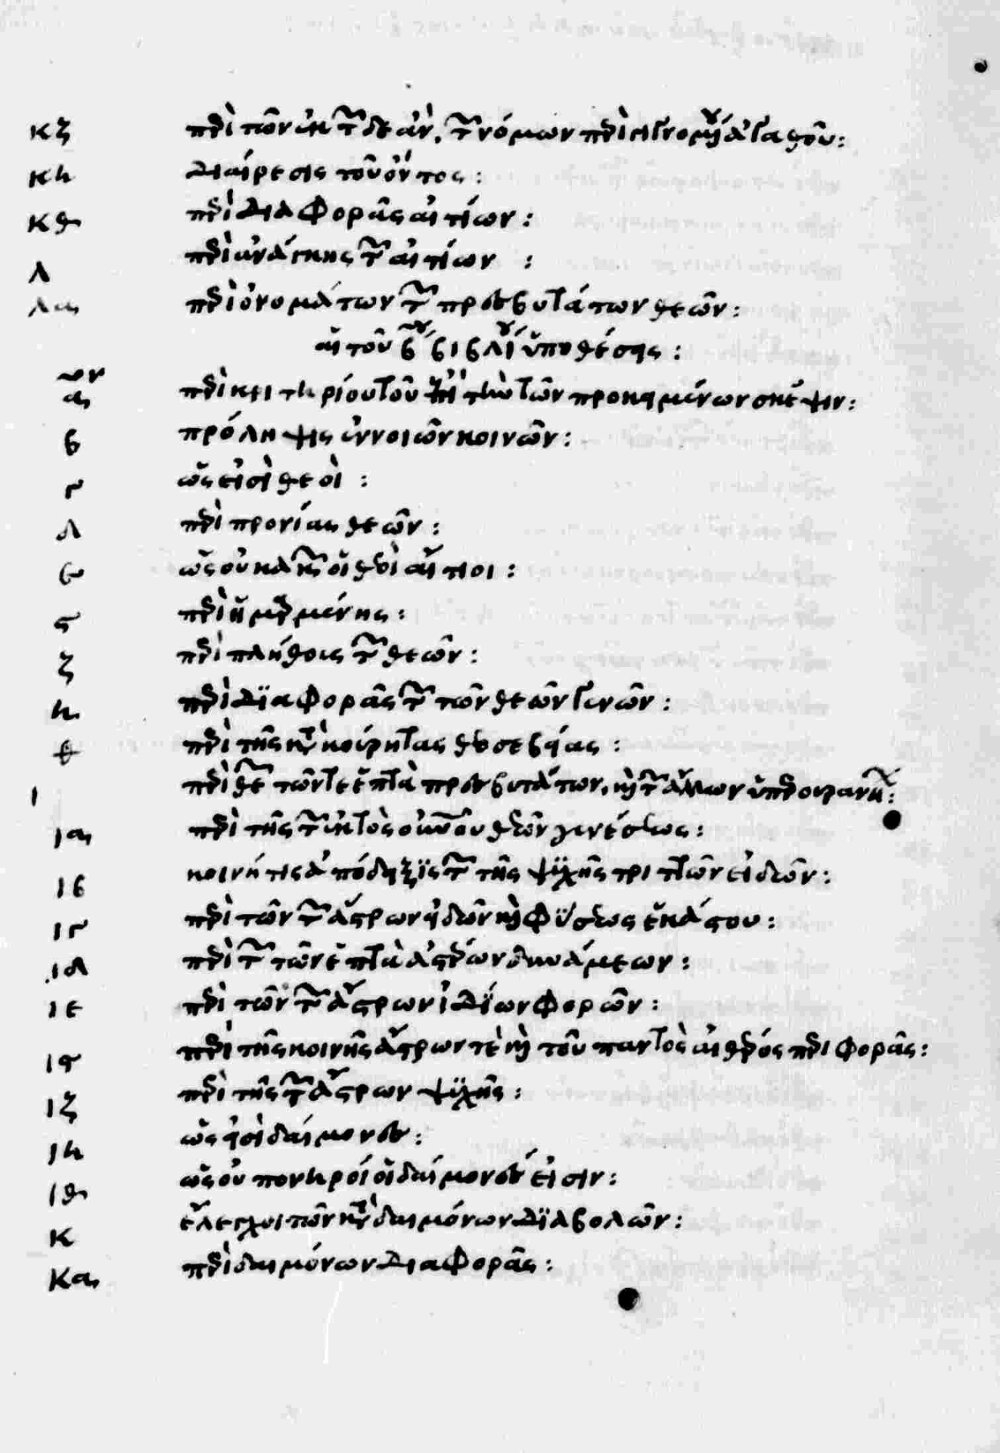 κζ περὶ τῶν ἐκ τῶν δε ἀν. τῶν νόμων περὶ γινομένου ἀγαθοῦ:
κη Διαίρεσις τοῦ ὄντος:
κθ περὶ Διαφορᾶς αἰτίων:
λ περὶ ἀνάγκης τῶν αἰτίων :
λα περὶ ὀνομάτων τῶν πρεσβυτάτων θεῶν:
αἱ τοῦ βου βιβλίου ὑποθέσεις:
α περὶ κριτηρίου τοῦ ἐπὶ τὴν τῶν προκειμένων σκέψιν:
β πρόληψις ἐννοιῶν κοινῶν:
γ ὡς εἰσὶ θεοὶ :
δ περὶ προνίας θεῶν:
ε ὡς οὐ κακῶν οἱ θεοὶ αἴτιοι:
ς περὶ εἱμαρμένης:
ζ περὶ πλήθους τῶν θεῶν:
η περὶ Διαφορᾶς τῶν τῶν θεῶν γενῶν:
θ περὶ τῆς κοινότητας θεοσεβείας :
ι περὶ τῶν τε ἑπτὰ πρεσβυτάτων, καὶ τῶν ἄλλων ὑπερουρανίων:
ια περὶ τῆς τῶν ἐντὸς οὐρανοῦ θεῶν γενέσεως:
ιβ κοινή τις ἀπόδειξις τῶν τῆς ψυχῆς τριττῶν εἰδῶν:
ιγ περὶ τῶν τῶν ἄστρων εἰδῶν καὶ φύσεως ἑκάστου:
ιδ περὶ τῶν τῶν ἑπτὰ ἀστέρων δυνάμεων:
ιε περὶ τῶν τῶν ἄστρων ἰδίων φορῶν:
ις περὶ τῆς κοινῆς ἄστρων τὲ καὶ τοῦ παντὸς αἰθέρος περιφορᾶς:
ιζ περὶ τῆς τῶν ἄστρων ψυχῆς:
ιη ὡς εἰσὶ δαίμονες:
ιθ ὡς οὐ πονηροί οἱ δαίμονές εἰσιν:
κ ἔλεγχοι τῶν κατὰ δαιμόνων Διαβολῶν:
κα περὶ δαιμόνων Διαφορᾶς: